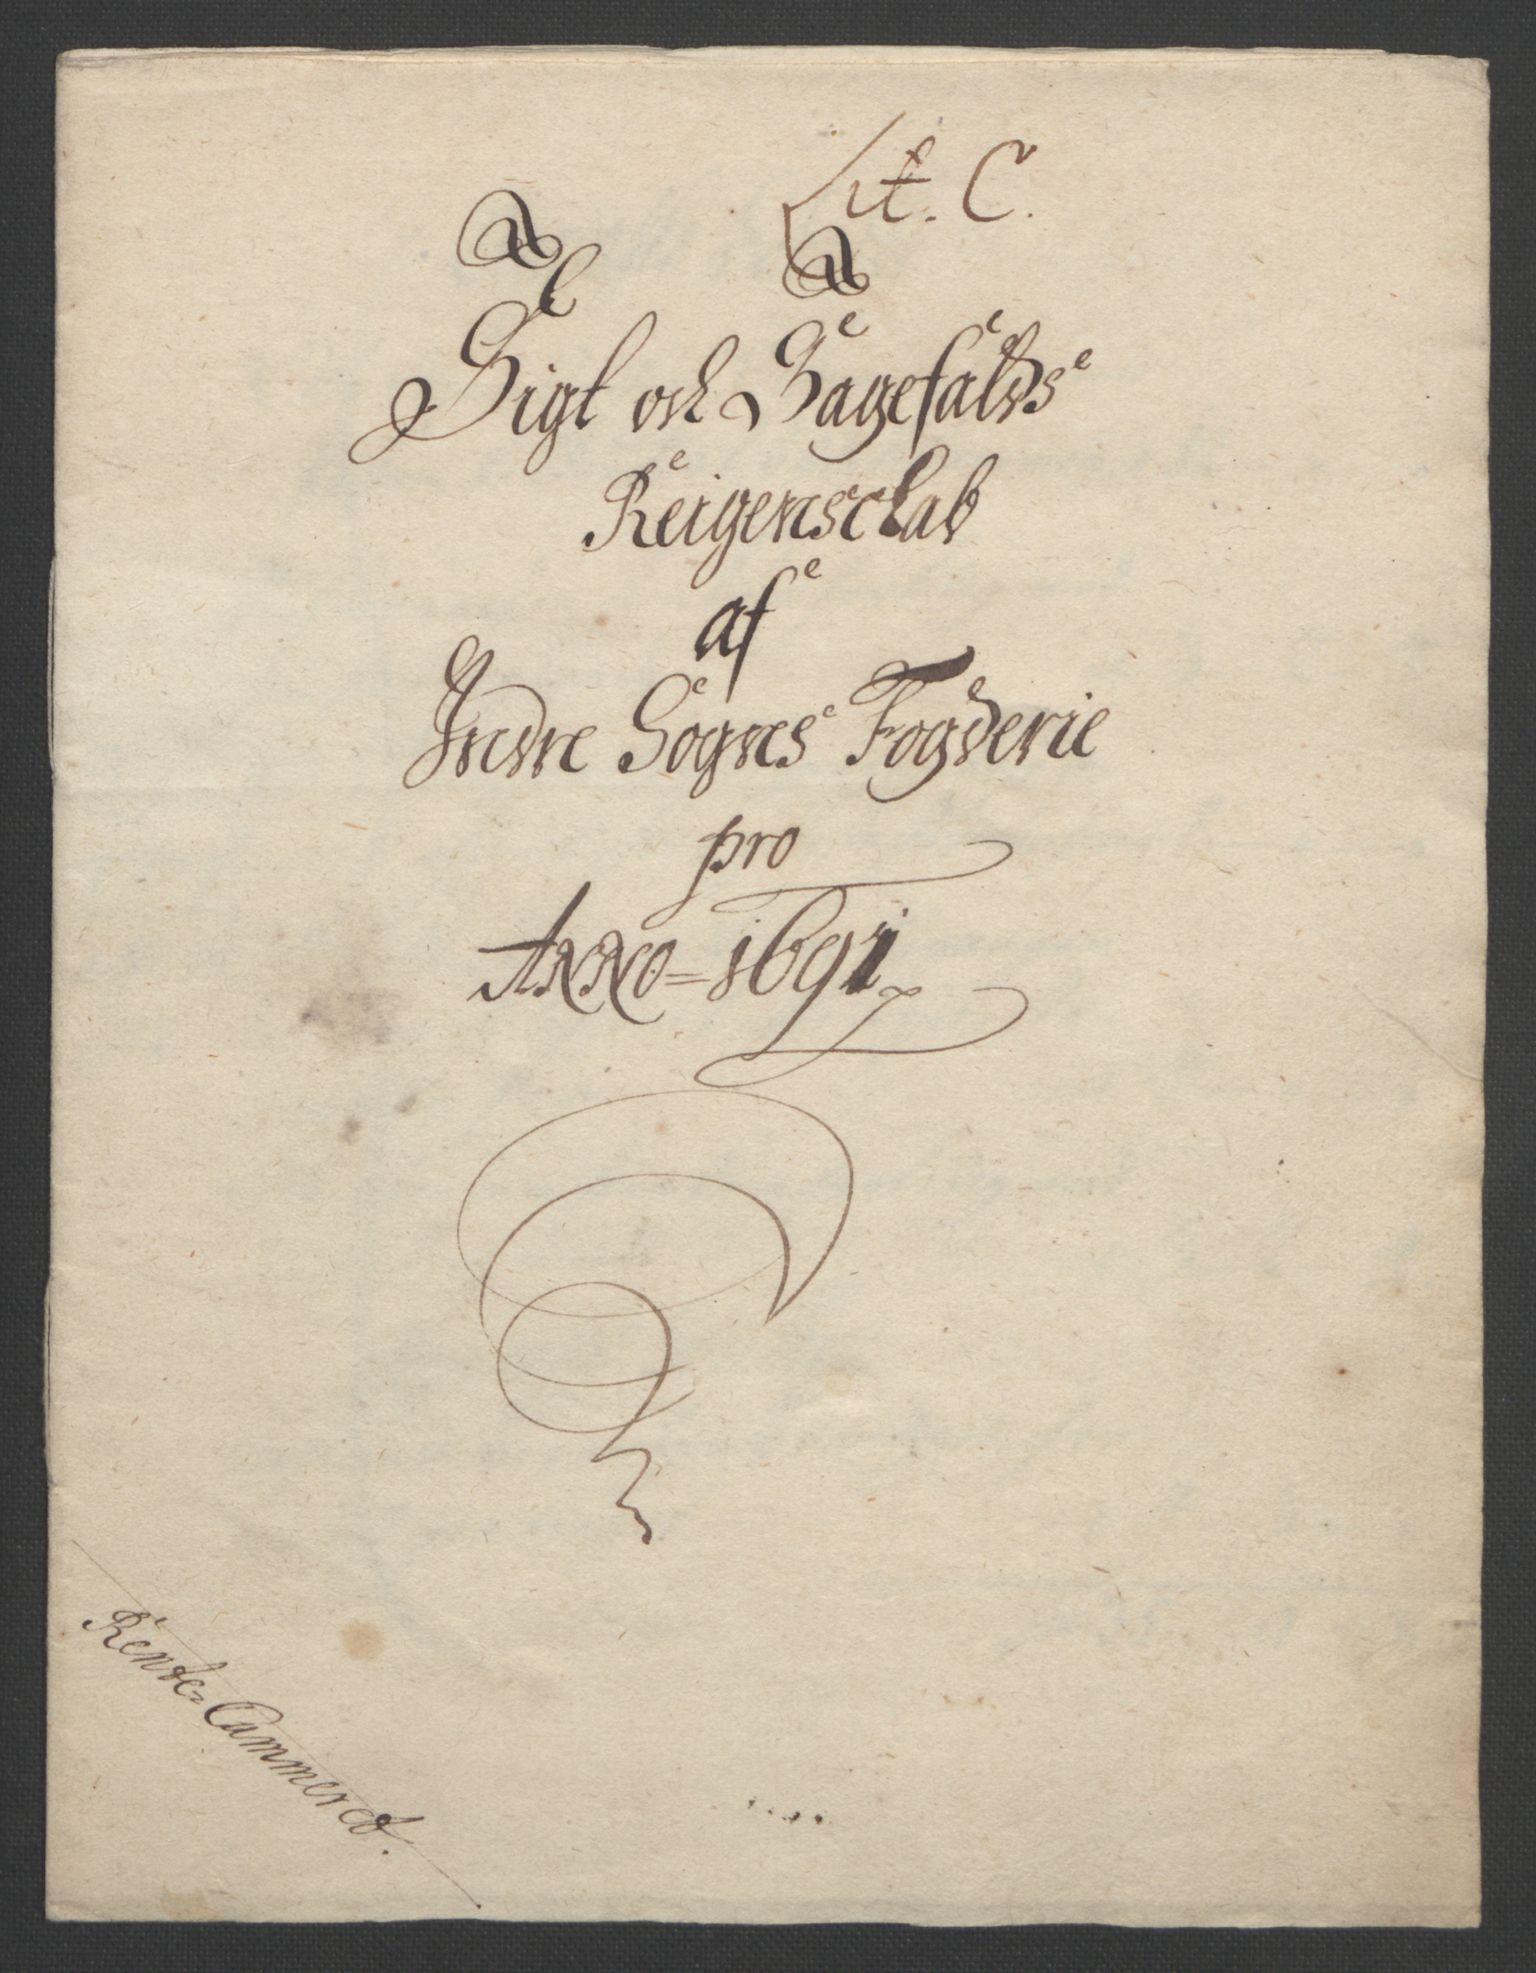 Lit. C.
Sigt och Sagefalds
Reigenschab
af
Indre Sogns Fogderie
pro
Anno = 1691
Rente Cammeret.